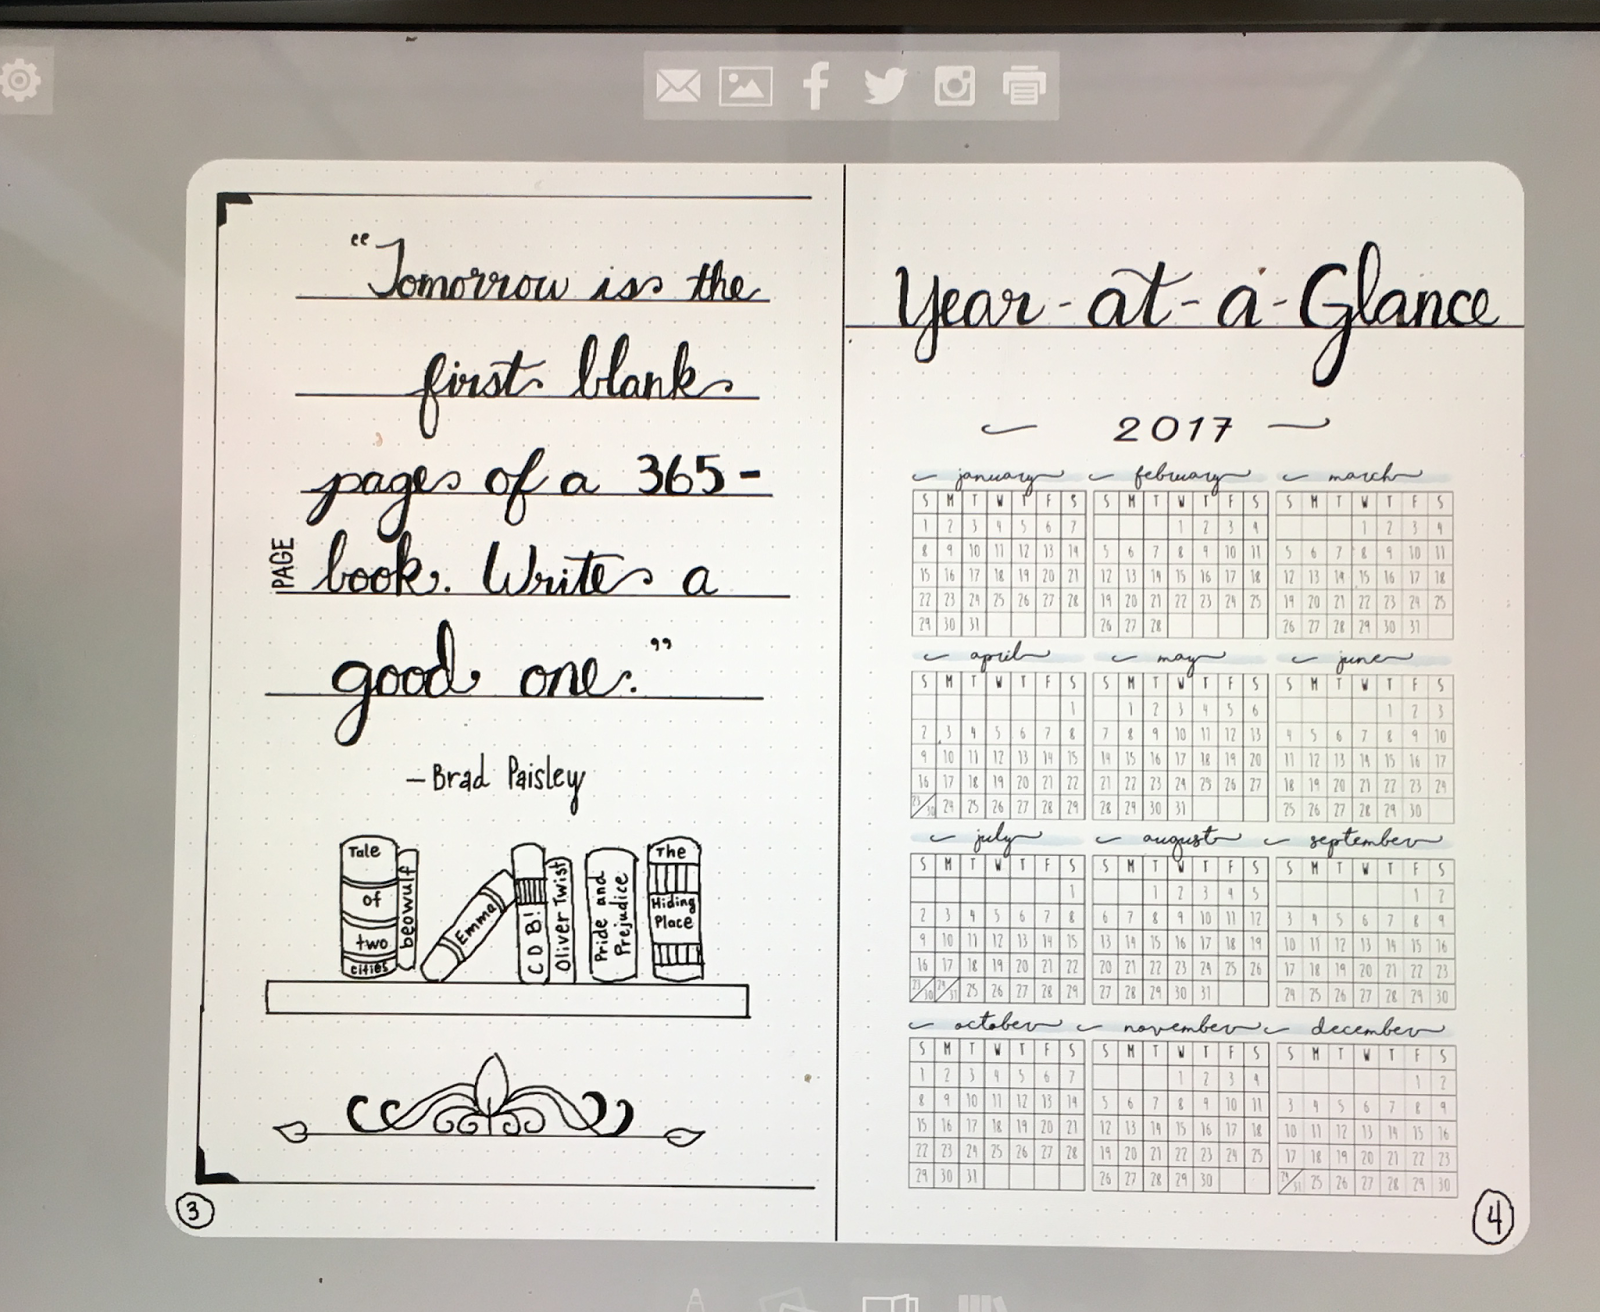 “Tomorrow is the
first blank
pages of a 365-
PAGE book. Write a
good one.”
–Brad Paisley
Tale of two cities
beowulf
Emma
CDB!
Oliver Twist
Pride and Prejudice
The Hiding Place
3
Year-at-a-Glance
2017
january february march
S M T W T F S S M T W T F S S M T W T F S
1 2 3 4 5 6 7 1 2 3 4 1 2 3 4
8 9 10 11 12 13 14 5 6 7 8 9 10 11 5 6 7 8 9 10 11
15 16 17 18 19 20 21 12 13 14 15 16 17 18 12 13 14 15 16 17 18
22 23 24 25 26 27 28 19 20 21 22 23 24 25 19 20 21 22 23 24 25
29 30 31 26 27 28 26 27 28 29 30 31
april may june
S M T W T F S S M T W T F S S M T W T F S
1 1 2 3 4 5 6 1 2 3
2 3 4 5 6 7 8 7 8 9 10 11 12 13 4 5 6 7 8 9 10
9 10 11 12 13 14 15 14 15 16 17 18 19 20 11 12 13 14 15 16 17
16 17 18 19 20 21 22 21 22 23 24 25 26 27 18 19 20 21 22 23 24
23/30 24 25 26 27 28 29 28 29 30 31 25 26 27 28 29 30
july august september
S M T W T F S S M T W T F S S M T W T F S
1 1 2 3 4 5 1 2
2 3 4 5 6 7 8 6 7 8 9 10 11 12 3 4 5 6 7 8 9
9 10 11 12 13 14 15 13 14 15 16 17 18 19 10 11 12 13 14 15 16
16 17 18 19 20 21 22 20 21 22 23 24 25 26 17 18 19 20 21 22 23
23/30 24/31 25 26 27 28 29 27 28 29 30 31 24 25 26 27 28 29 30
october november december
S M T W T F S S M T W T F S S M T W T F S
1 2 3 4 5 6 7 1 2 3 4 1 2
8 9 10 11 12 13 14 5 6 7 8 9 10 11 3 4 5 6 7 8 9
15 16 17 18 19 20 21 12 13 14 15 16 17 18 10 11 12 13 14 15 16
22 23 24 25 26 27 28 19 20 21 22 23 24 25 17 18 19 20 21 22 23
29 30 31 26 27 28 29 30 24/31 25 26 27 28 29 30
4